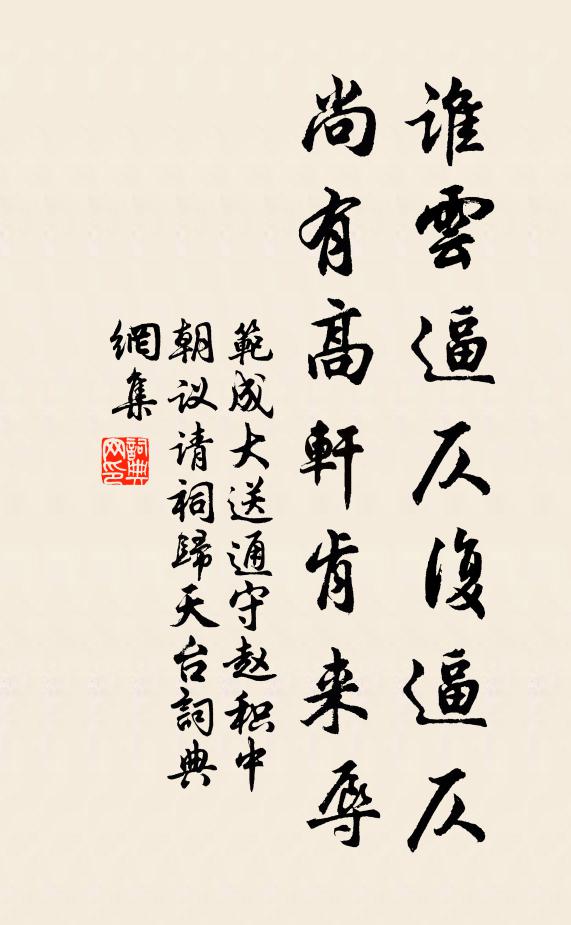 誰雲逼仄復逼仄
尚有高軒肯来辱
範成大送通守赵积中
朝议请祠歸天台詞典
網集
詞典網印